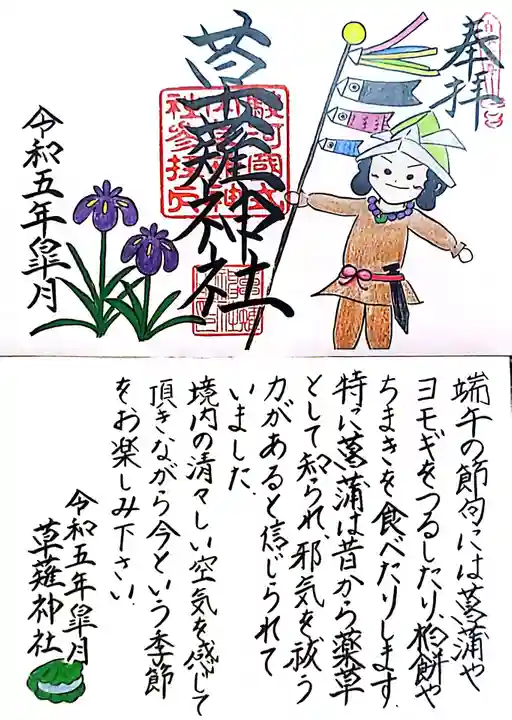 奉拝
草薙神社
令和五年皐月
端午の節句には菖蒲や
ヨモギをつるしたり、柏餅や
ちまきを食べたりします。
特に菖蒲は昔から薬草
として知られ、邪気を祓う
力があると信じられて
いました。
境内の清々しい空気を感じて
頂きながら今という季節
をお楽しみ下さい。
令和五年皐月
草薙神社